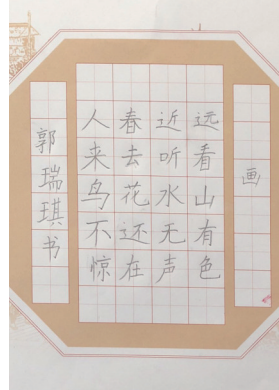 画
远看山有色
近听水无声
春去花还在
人来鸟不惊
郭瑞琪书